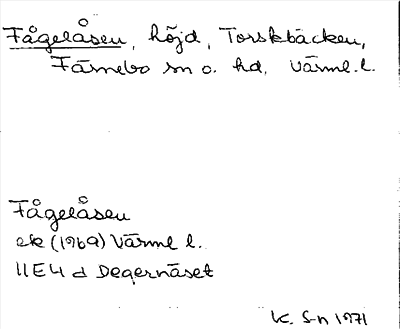 Fågelåsen, höjd, Torskbäcken,
Färnebo sn o. hd, Värml. l.
Fågelåsen
ek (1969) Värml l.
11E4 d Degernäset
K. S-n 1971